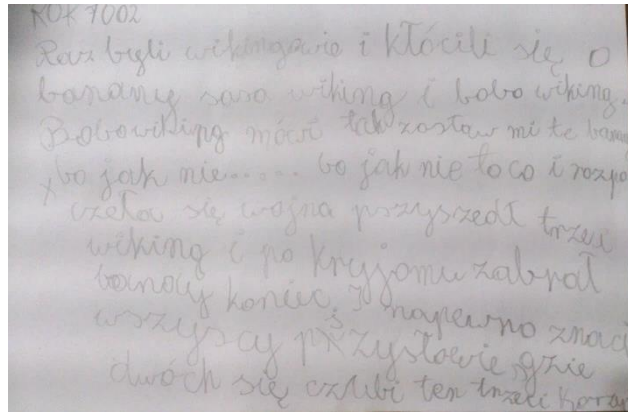 ROK 1002
Raz byli wikingowie i kłócili się o
banany sasa wiking i bobo wiking.
Bobowiking mówi tak zostaw mi te banany
bo jak nie..... bo jak nie to co i rozpo
czeła się wojna przyszedł trzeci
wiking i po kryjomu zabrał
banany koniec, napewno znaci
wszyscy przysłowie, gzie
dwóch się czubi ten trzeci korzy